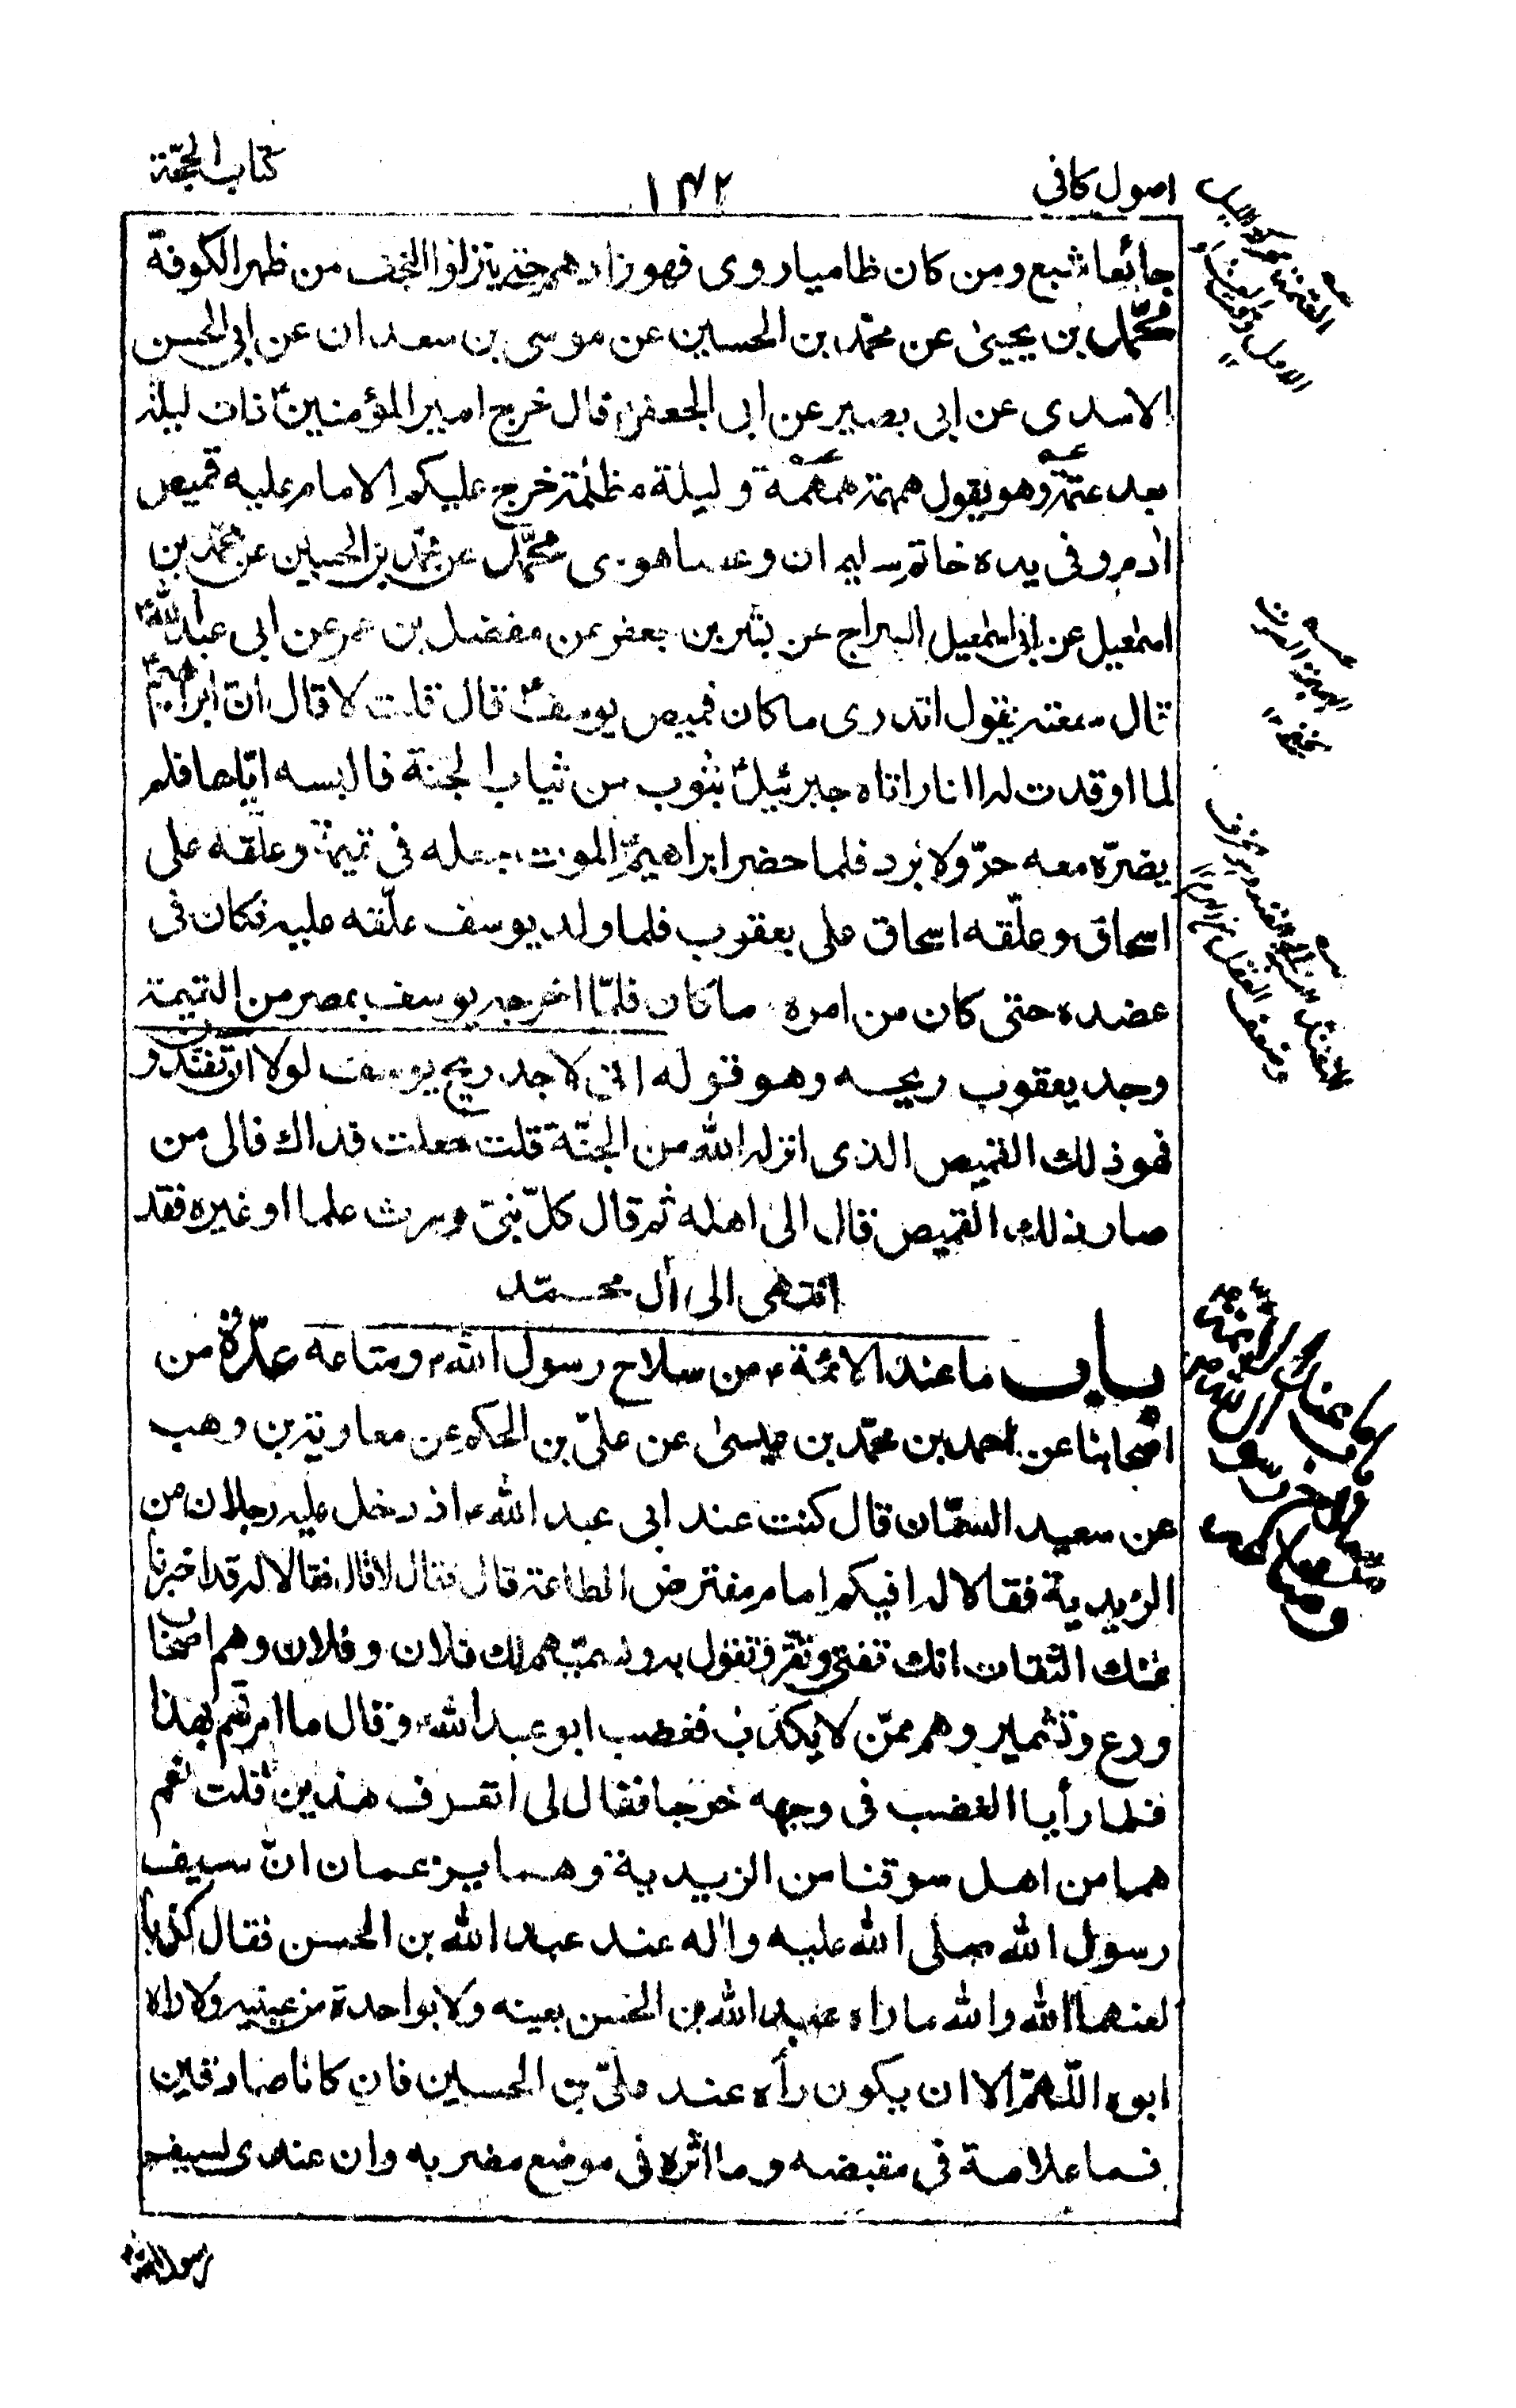 اصول كافى
١٤٢
كتاب الحجّة
جائعا شبع ومن كان ظاميا روى فهو زادهم حتى ينزلوا النجف من ظهر الكوفة
محمّد بن يحيى عن محمّد بن الحسين عن موسى بن سعدان عن ابى الحسن
الاسدى عن ابى بصير عن ابى الجعفر قال خرج امير المؤمنينؑ ذات ليلة
بعد عتمة وهو يقول همهمة همهمة وليلة مظلمة خرج عليكم الامام عليه قميص
ادم وفى يده خاتم سليمان وعصا موسى محمّد عن محمّد بن الحسين عن محمّد بن
اسمعيل عن ابى اسمعيل السراج عن بشر بن جعفر عن مفضل بن عمر عن ابى عبد اللهؑ
قال سمعته يقول اتدرى ما كان قميص يوسفؑ قال قلت لا قال انّ ابراهيمؑ
لما اوقدت له النار اتاه جبرئيلؑ بثوب من ثياب الجنة فالبسه ايّاها فلم
يضرّه معه حرّ ولا برد فلما حضر ابراهيمؑ الموت جعله فى تميمة وعلّقه على
اسحاق وعلّقه اسحاق على يعقوب فلما ولد يوسف علّقه عليه فكان فى
عضده حتى كان من امره ما كان فلمّا اخرجه يوسف بمصر من التميمة
وجد يعقوب ريحه وهو قوله انى لاجد ريح يوسف لولا ان تفنّدون
فهو ذلك القميص الذى انزله الله من الجنّة قلت جعلت فداك فالى من
صار ذلك القميص قال الى اهله ثم قال كلّ نبىّ ورث علما او غيره فقد
انتهى الى ال محمّد
باب ما عند الائمّةؑ من سلاح رسول اللهؐ ومتاعه عدّة من
اصحابنا عن احمد بن محمّد بن عيسى عن علىّ بن الحكم عن معاوية بن وهب
عن سعيد السمّان قال كنت عند ابى عبد اللهؑ اذ دخل عليه رجلان من
الزيدية فقالا له افيكم امام مفترض الطاعة قال فقال لا قال فقالا له قد اخبرنا
عنك الثقات انك تفتى وتقرّ وتقول به ونسميهم لك فلان وفلان وهم اصحاب
ورع وتشمير وهم ممّن لا يكذب فغضب ابو عبد اللهؑ وقال ما امرتهم بهذا
فلما رأيا الغضب فى وجهه خرجا فقال لى اتعرف هذين قلت نعم
هما من اهل سوقنا من الزيدية وهما يزعمان انّ سيف
رسول الله صلى الله عليه واله عند عبد الله بن الحسن فقال كذبا
لعنهما الله والله ما راه عبد الله بن الحسن بعينه ولا بواحدة من عينيه ولا راه
ابوه اللّهمّ الا ان يكون رأه عند علىّ بن الحسين فان كانا صادقين
فما علامة فى مقبضه وما اثره فى موضع مضربه وان عندى لسيف
رسول اللهؐ